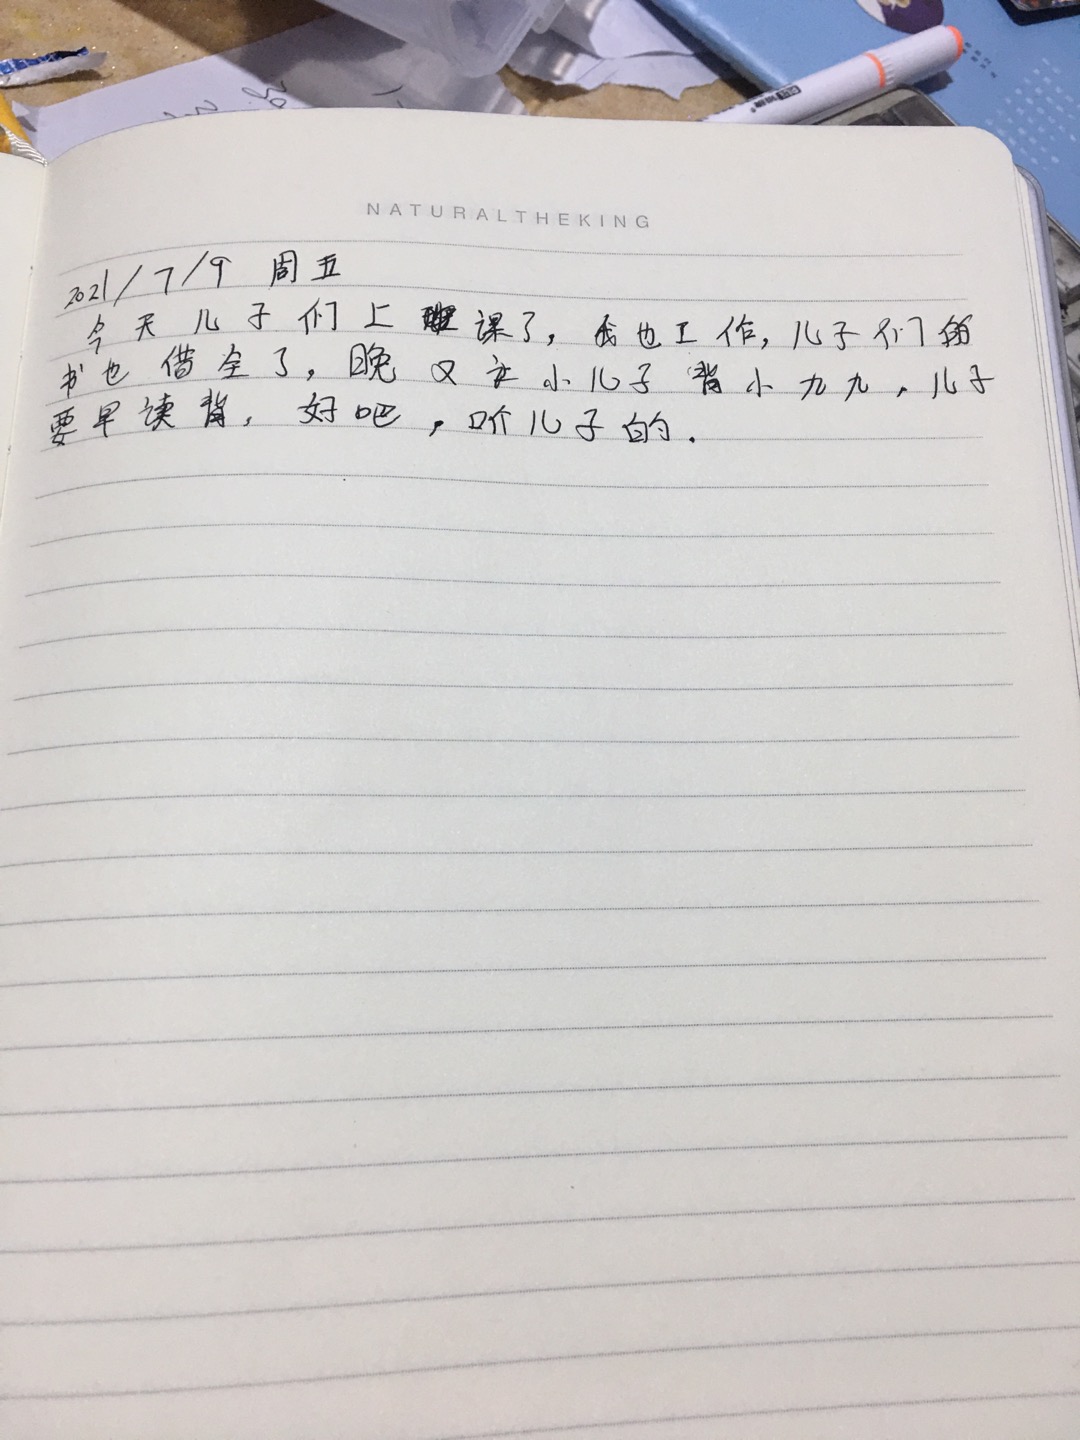 NATURALTHEKING
2021/7/9 周五
今天儿子们上课了,我也工作,儿子们的
书也借全了,晚又让小儿子背小九九,儿子
要早读背,好吧,听儿子的.